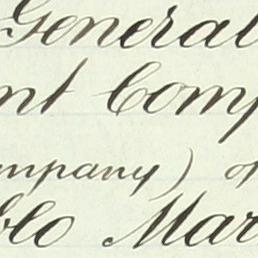 General
nt Comp
ompany) of
blo Mar